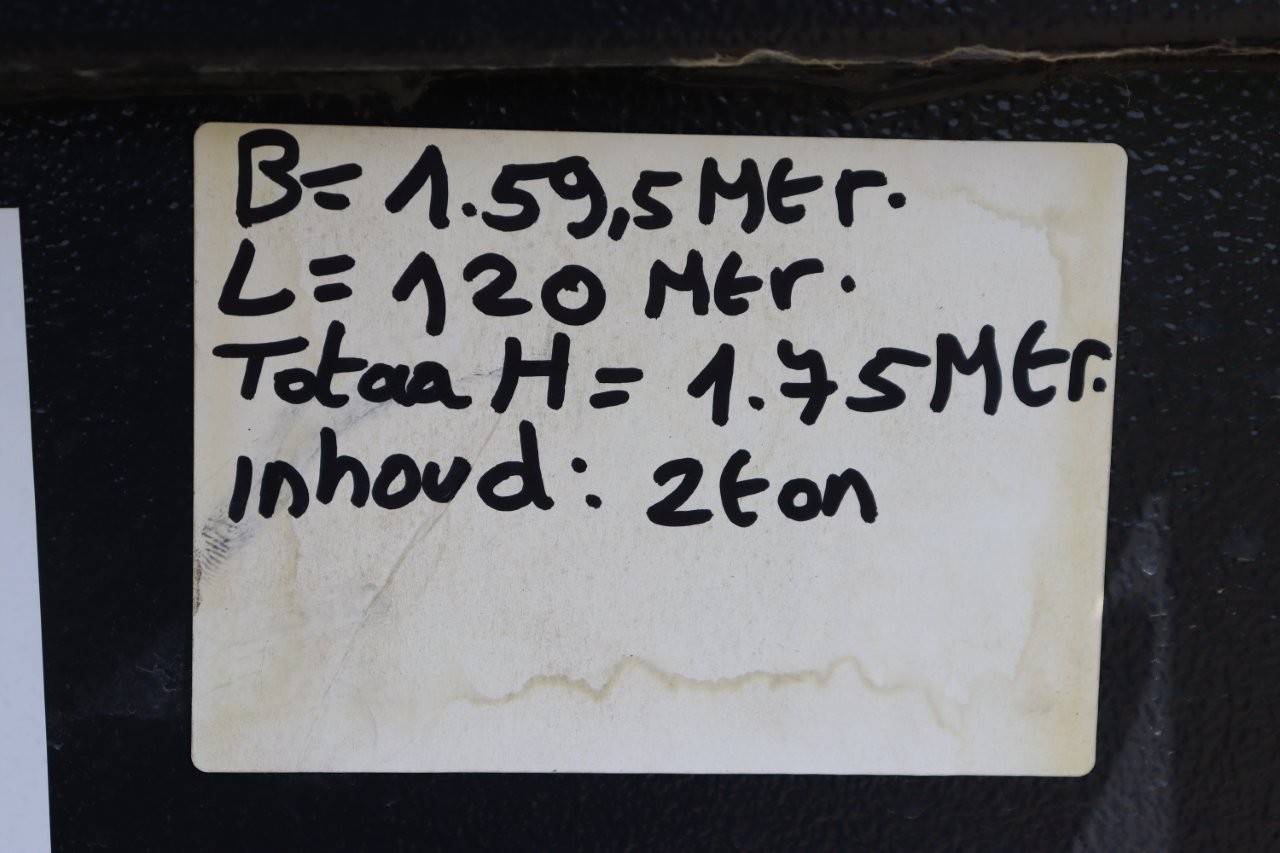 B= 1.59,5 Mtr.
L= 120 Mtr.
Totaa H= 1.75 Mtr.
inhoud: 2ton